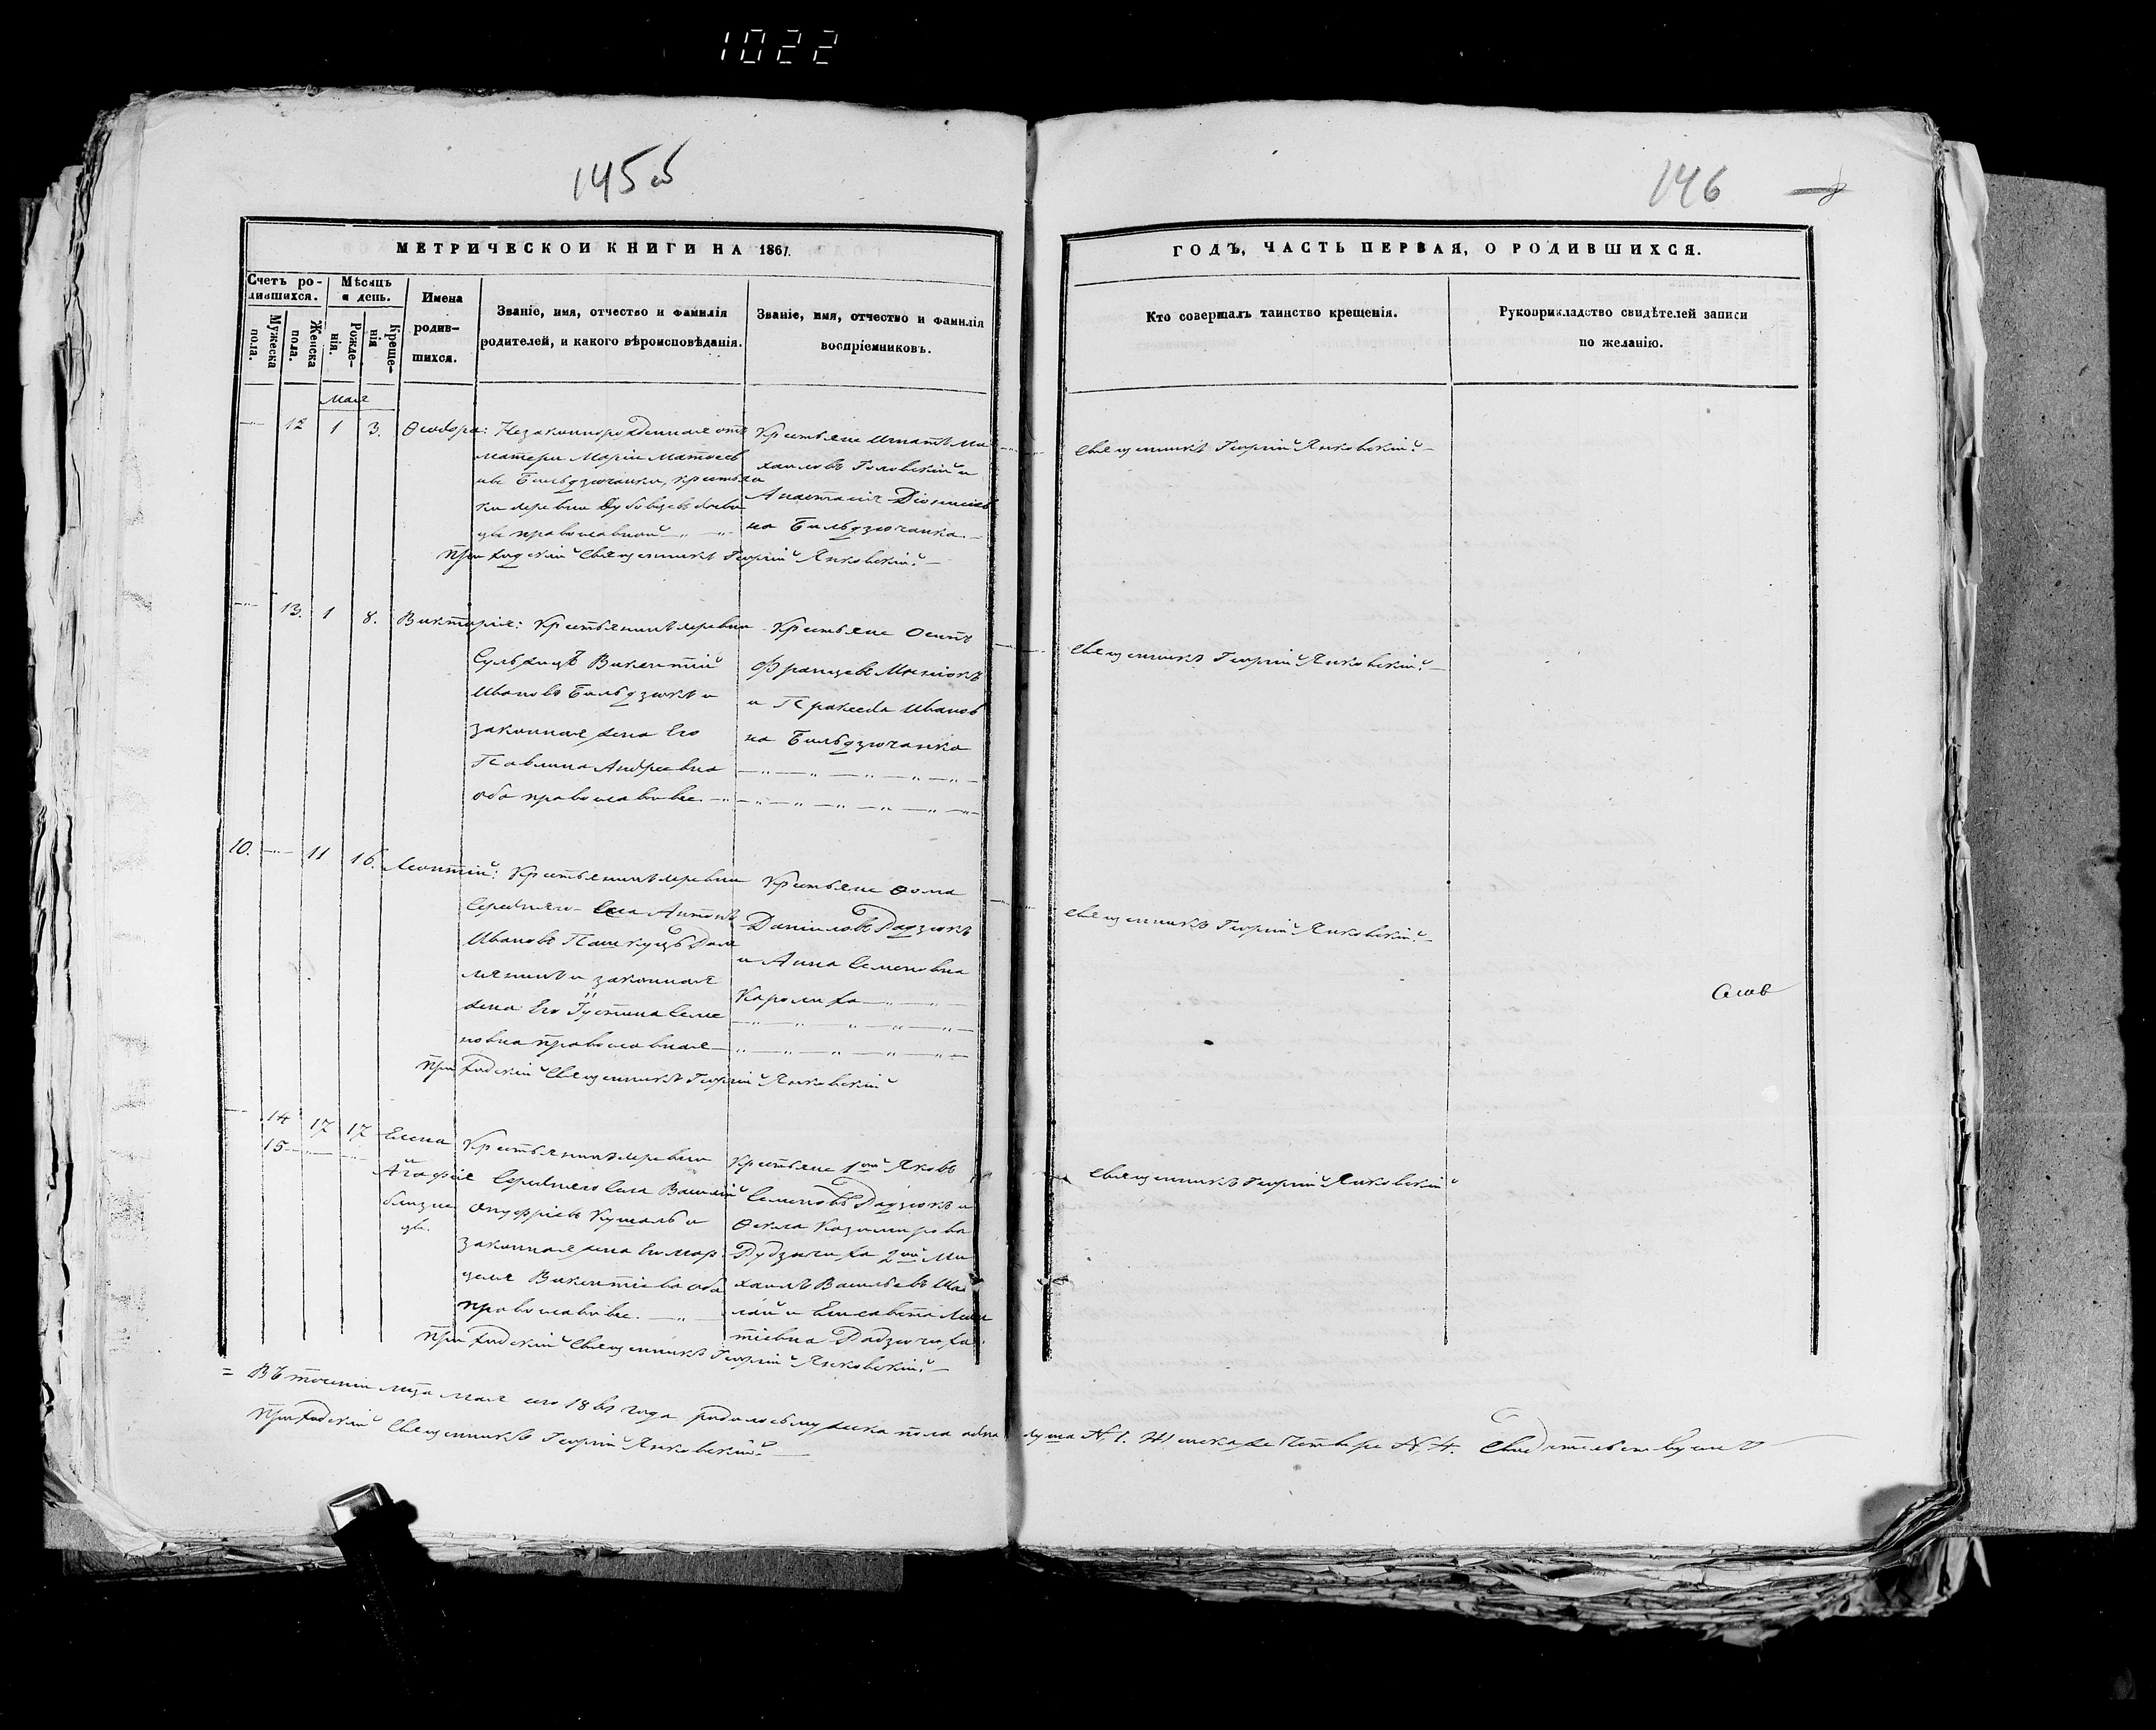 1022
145 об
146
МЕТРИЧЕСКОЙ КНИГИ НА 1861.
ГОДЪ, ЧАСТЬ ПЕРВАЯ, О РОДИВШИХСЯ.
Счетъ ро-
дившихся.
Мужеска пола.
Женска пола.
Мѣсяцъ
и день.
Рожде-
нія.
Креще-
нія
Имена
родив-
шихся.
Званіе, имя, отчество и фамилія
родителей, и какого вѣроисповѣданія.
Званіе, имя, отчество и фамилія
воспріемниковъ.
Кто совершалъ таинство крещенія.
Рукоприкладство свидѣтелей записи
по желанію.
Мая
12 1 3. Ѳеодора:
Незаконнорожденная отъ
матери Маріи Матѳеев
ны Бильдзючанки, крестьян
ки деревни
православной
Крестьяне Игнатъ Ми
хаиловъ Головскій и
Анастасія Діонисіев
на Бильдзючанка.
Священникъ Георгій Янковскій.
Приходскій Священникъ Георгій Янковскій.
13. 1 8. Викторія:
Крестьянинъ деревни
Викентій
Ивановъ Бильдзюкъ и
законная жена Его
Павлина Андреевна
оба православные.
Крестьяне Осипъ
Францевъ
и Пракседа Иванов
на Бильдзючанка
Священникъ Георгій Янковскій.
10. 11 16. Леонтій:
Крестьянинъ деревни
Середняго Села Антонъ
Ивановъ
и законная
жена Его Іустина Семе
новна православная
Крестьяне Ѳома
Даніиловъ Дадзюкъ
и Анна Семеновна
Священникъ Георгій Янковскій.
Приходскій Священникъ Георгій Янковскій
14 17 17 Елена
15
Агафія
близне
цы.
Крестьянинъ деревни
Середняго Села Василій
Онуфріевъ Кушаль и
законная жена Его Мар
целя Викентіева оба
православные.
Крестьяне 1ой Яковъ
Семеновъ Дадзюкъ и
Ѳекла Казимирова
2ой Ми
хаилъ Васильевъ
и Елисавета
Дадзючиха.
Священникъ Георгій Янковскій
Приходскій Священникъ Георгій Янковскій.
= Въ теченіи мѣсца Мая сего 1861 года родилось мужеска пола одна душа № 1. Женска же четыре № 4. Свидѣтельствуемъ
Приходскій Священникъ Георгій Янковскій.